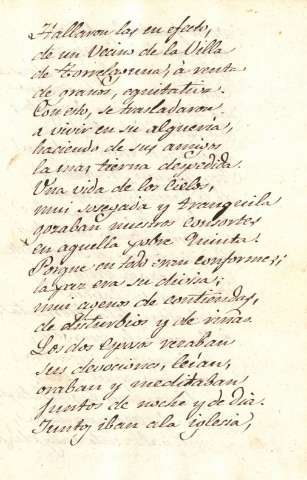 Hallaron las en efecto,
de un Vecino de la Villa
de Torrelaguna, á renta
de granos, equitativa.
Con esto, se trasladaron
a vivir en su alquería,
haciendo de sus amigos
la mas tierna despedida.
Una vida de los Cielos,
mui sosegada y tranquila
gozaban nuestros consortes
en aquella pobre Quinta.
Porque en todo eran conformes;
la paz era su divisa;
mui agenos de contiendas,
de disturbios y de riñas.
Los dos rezaban
sus devociones, leían,
oraban y meditaban
Juntos de noche y de dia.
Juntos iban a la iglesia,